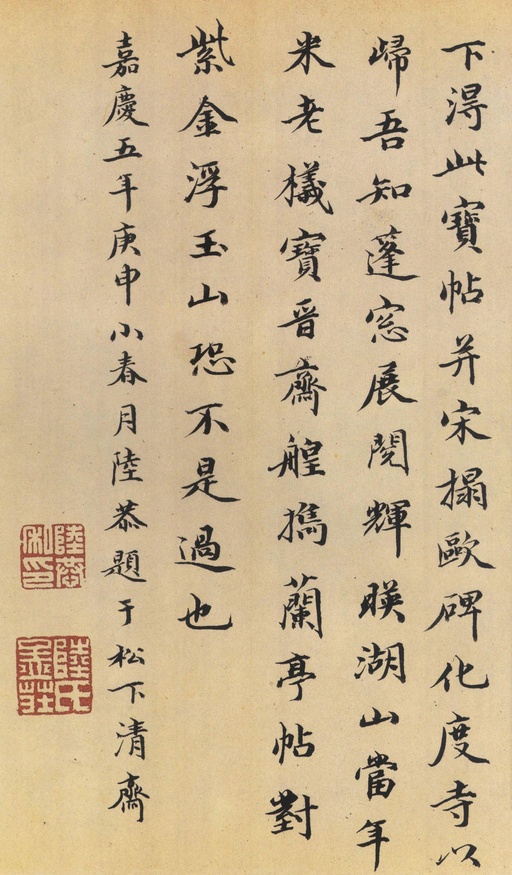 下淂此寶帖并宋搨歐碑化度寺以
歸吾知蓬窓展閱輝暎湖山當年
米老檥寶晉齋艎攜蘭亭帖對
紫金浮玉山恐不是過也
嘉慶五年庚申小春月陸恭題于松下清齋
陸恭私印
陸氏